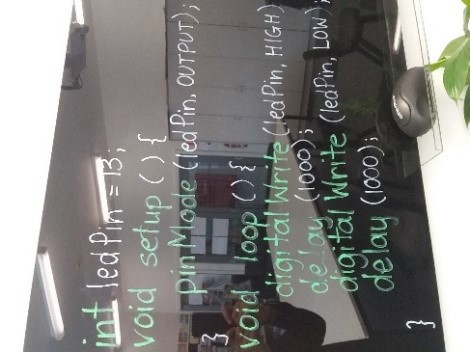 int ledPin = 13;
void setup () {
pinMode (ledPin, OUTPUT);
}
void loop () {
digital Write (ledPin, HIGH)
delay (1000);
digital Write (ledPin, LOW);
delay (1000);
}